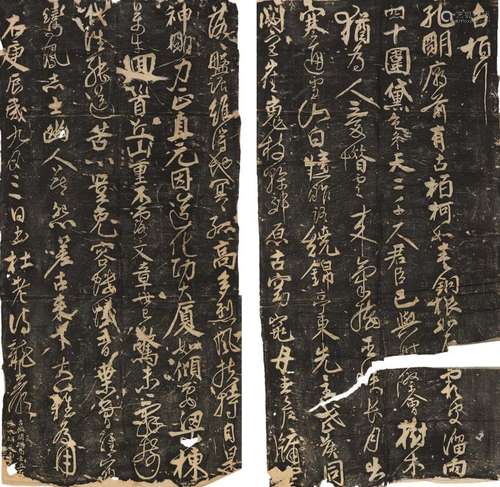 古柏行
孔明廟前有古柏柯如青銅根如石霜皮溜雨
四十圍黛色參天二千尺君臣已與時際會樹木
猶為人愛惜雲來氣接巫峽長月出
寒通雪山白憶昨路繞錦亭東先主武侯同
閟宮崔嵬枝幹郊原古窈窕丹青戶牖
落盤踞雖得地冥冥孤高多烈風扶持自是
神明力正直元因造化功大廈如傾要梁棟
萬牛迴首丘山重不露文章世已驚未辭翦
伐誰能送苦心豈免容螻蟻香葉曾經宿
鸞鳳志士幽人莫怨嗟古來材大難為用
右庚辰歲九月三日書杜老詩